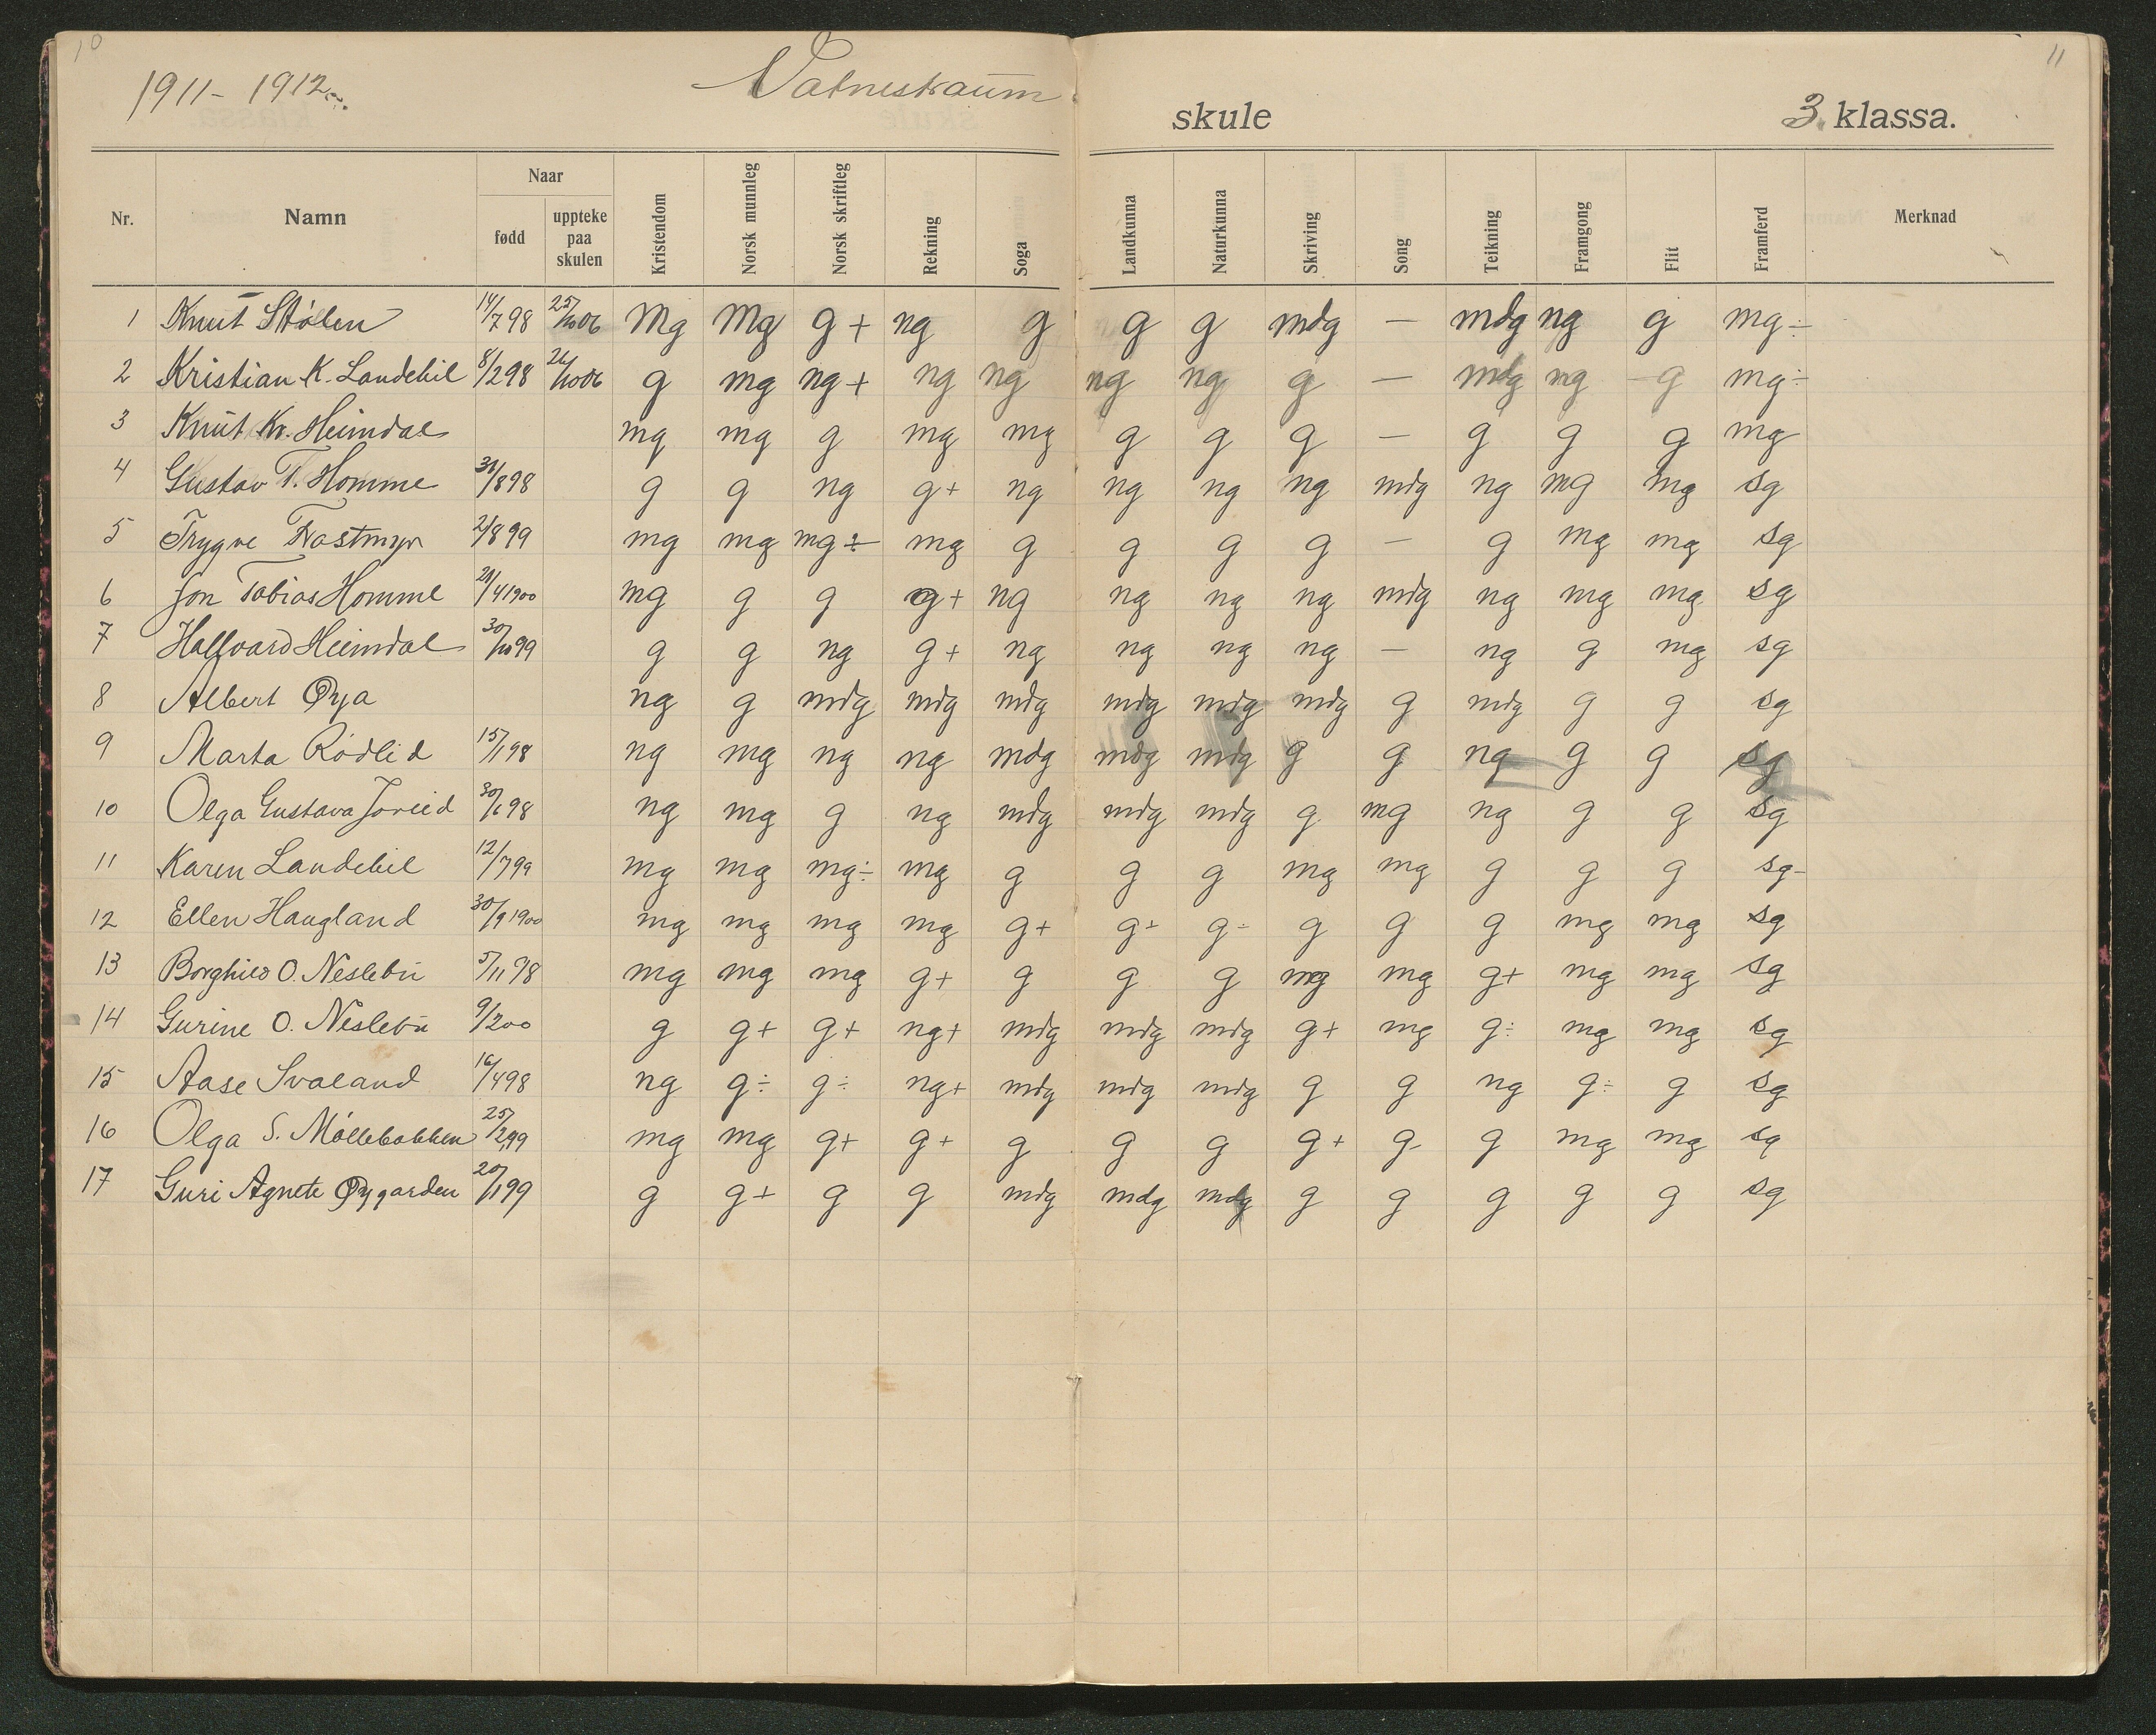 10
11
1911-1912
Vatnestraum skule 3. klassa.
Nr. Namn Naar fødd uppteke paa skulen Kristendom Norsk munnleg Norsk skriftleg Rekning Soga Landkunna Naturkunna Skriving Song Teikning Framgong Flit Framferd Merknad
1 Knut Stølen 14/7 98 25/10 06 Mg Mg g+ ng g g g mdg — mdg ng g mg÷
2 Kristian K. Landehil 8/2 98 26/10 06 g mg ng+ ng ng ng ng g — mdg mg g mg÷
3 Knut Kr. Heimdal mg mg g mg mg g g g — g g g mg
4 Gustav T. Homme 31/8 98 g g ng g+ ng ng ng ng mdg ng mg mg sg
5 Trygve 2/8 99 mg mg mg÷ mg g g g g — g mg mg sg
6 Jon Tobias Homme 21/4 1900 mg g g g+ ng ng ng ng mdg ng mg mg sg
7 Hallvard Heimdal 30/10 99 g g ng g+ ng ng ng ng — ng g mg sg
8 Albert Øya ng g mdg mdg mdg mdg mdg mdg g mdg g g sg
9 Marta Rødlid 15/1 98 ng mg ng ng mdg mdg mdg g g ng g g sg
10 Olga Gustava 30/6 98 ng mg g ng mdg mdg mdg g mg ng g g sg
11 Karen Landehil 12/7 99 mg mg mg÷ mg g g g mg mg g g g sg-
12 Ellen Haugland 30/9 1900 mg mg mg mg g+ g÷ g÷ g g g mg mg sg
13 Borghild O. Neslebu 5/11 98 mg mg mg g+ g g g mg mg g+ mg mg sg
14 Gurine O. Neslebu 9/2 00 g g+ g+ ng+ mdg mdg mdg g+ mg g÷ mg mg sg
15 Aase Svaland 16/4 98 ng g÷ g÷ ng+ mdg mdg mdg g g ng g÷ g sg
16 Olga S. Møllebakken 25/2 99 mg mg g+ g+ g g g g+ g g mg mg sg
17 Guri Agnete Øygarden 20/1 99 g g+ g g mdg mdg mdg g g g g g sg